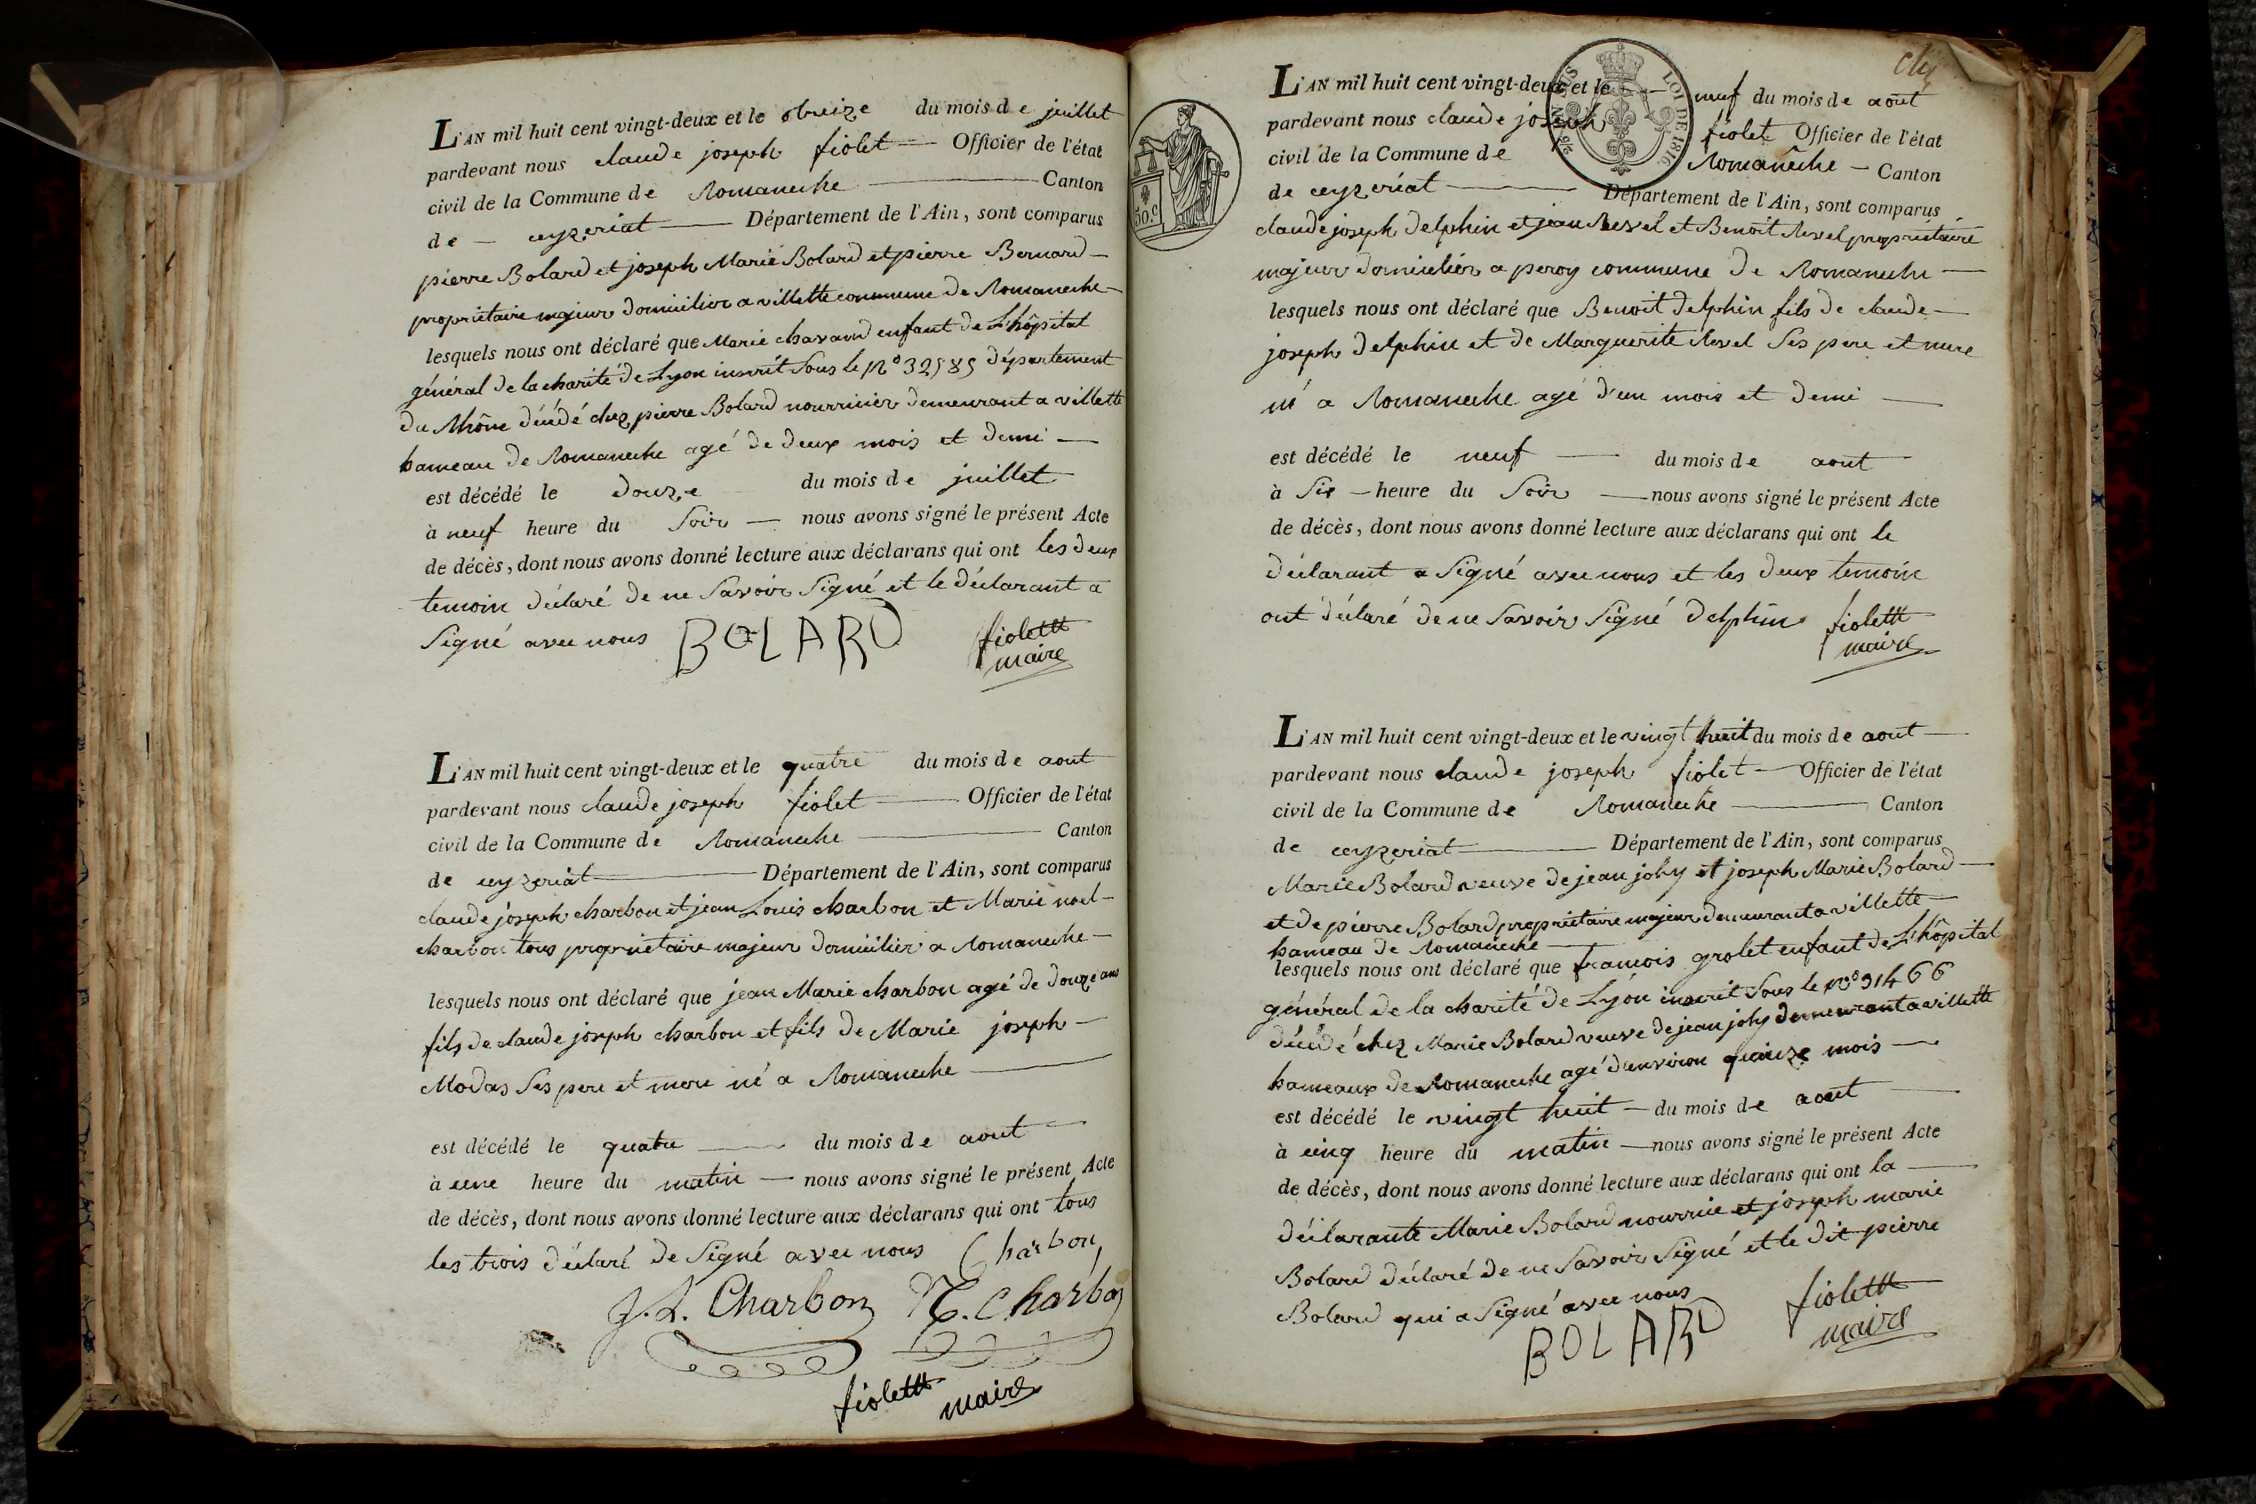 L'AN mil huit cent vingt-deux et le treize du mois de juillet
pardevant nous claude joseph fiolet Officier de l'état
civil de la Commune de Romaneche Canton
de ceyzeriat Département de l'Ain, sont comparus
pierre Bolard et joseph Marie Bolard et pierre Bernard
propriétaire majeur domicilier a villette commune de Romaneche
lesquels nous ont déclaré que Marie enfant de L'hôpital
général de la charité de Lyon inscrit Sous le N° 32585 département
du Rhône décédé chez pierre Bolard nourricier demeurant a villette
hameau de Romaneche agé de deux mois et demi
est décédé le douze du mois de juillet
à neuf heure du Soir nous avons signé le présent Acte
de décès, dont nous avons donné lecture aux déclarans qui ont les deux
temoin déclaré de ne Savoir Signé et le déclarant a
Signé avec nous BOLARD fiolett
maire
L'AN mil huit cent vingt-deux et le quatre du mois de aout
pardevant nous claude joseph fiolet Officier de l'état
civil de la Commune de Romaneche Canton
de ceyzeriat Département de l'Ain, sont comparus
claude joseph charbon et jean Louis charbon et Marie noel
charbon tous propriétaire majeur domicilier a Romaneche
lesquels nous ont déclaré que jean Marie charbon agé de douze ans
fils de claude joseph charbon et fils de Marie joseph
Modas Ses pere et mere né a Romaneche
est décédé le quatre du mois de aout
à une heure du matin nous avons signé le présent Acte
de décès, dont nous avons donné lecture aux déclarans qui ont tous
les trois déclaré de Signé avec nous Charbon
J. L. Charbon N. Charbon
fiolett maire
L'AN mil huit cent vingt-deux et le neuf du mois de aout
pardevant nous claude joseph fiolet Officier de l'état
civil de la Commune de Romaneche Canton
de ceyzeriat Département de l'Ain, sont comparus
LOI DE 1816.
50.c
claude joseph Delphin et jean Revel et Benoit Revel propriétaire
majeur domicilier a peroy commune de Romaneche
lesquels nous ont déclaré que Benoit Delphin fils de claude
joseph Delphin et de Marguerite Revel Ses pere et mere
né a Romaneche agé d'un mois et demi
est décédé le neuf du mois de aout
à Six heure du Soir nous avons signé le présent Acte
de décès, dont nous avons donné lecture aux déclarans qui ont le
déclarant a Signé avec nous et les deux temoin
ont déclaré de ne Savoir Signé Delphin fiolett
maire
L'AN mil huit cent vingt-deux et le vingt huit du mois de aout
pardevant nous claude joseph fiolet Officier de l'état
civil de la Commune de Romaneche Canton
de ceyzeriat Département de l'Ain, sont comparus
Marie Bolard veuve de jean joly et joseph Marie Bolard
et de pierre Bolard propriétaire majeur demeurant a villette
hameau de Romaneche
lesquels nous ont déclaré que francois grolet enfant de L'hôpital
général de la charité de Lyon inscrit Sous le N° 31466
décédé chez Marie Bolard veuve de jean joly demeurant a villette
hameaux de Romaneche agé d'environ quinze mois
est décédé le vingt huit du mois de aout
à cinq heure du matin nous avons signé le présent Acte
de décès, dont nous avons donné lecture aux déclarans qui ont la
déclarante Marie Bolard nourrice et joseph marie
Bolard déclaré de ne Savoir Signé et le dit pierre
Bolard qui a Signé avec nous fiolett
BOLARD maire